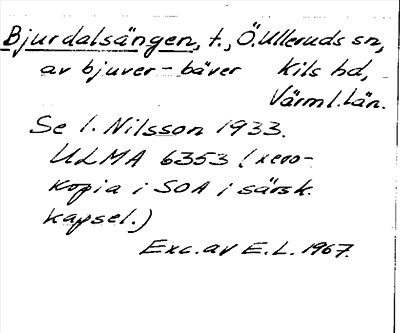 Bjurdalsängen, t., Ö. Ulleruds sn,
av bjuver - bäver Kils hd,
Värml. län.
Se l. Nilsson 1933.
ULMA 6353 (xero-
kopia i SOA i särsk.
kapsel.)
Exc. av E.L. 1967.